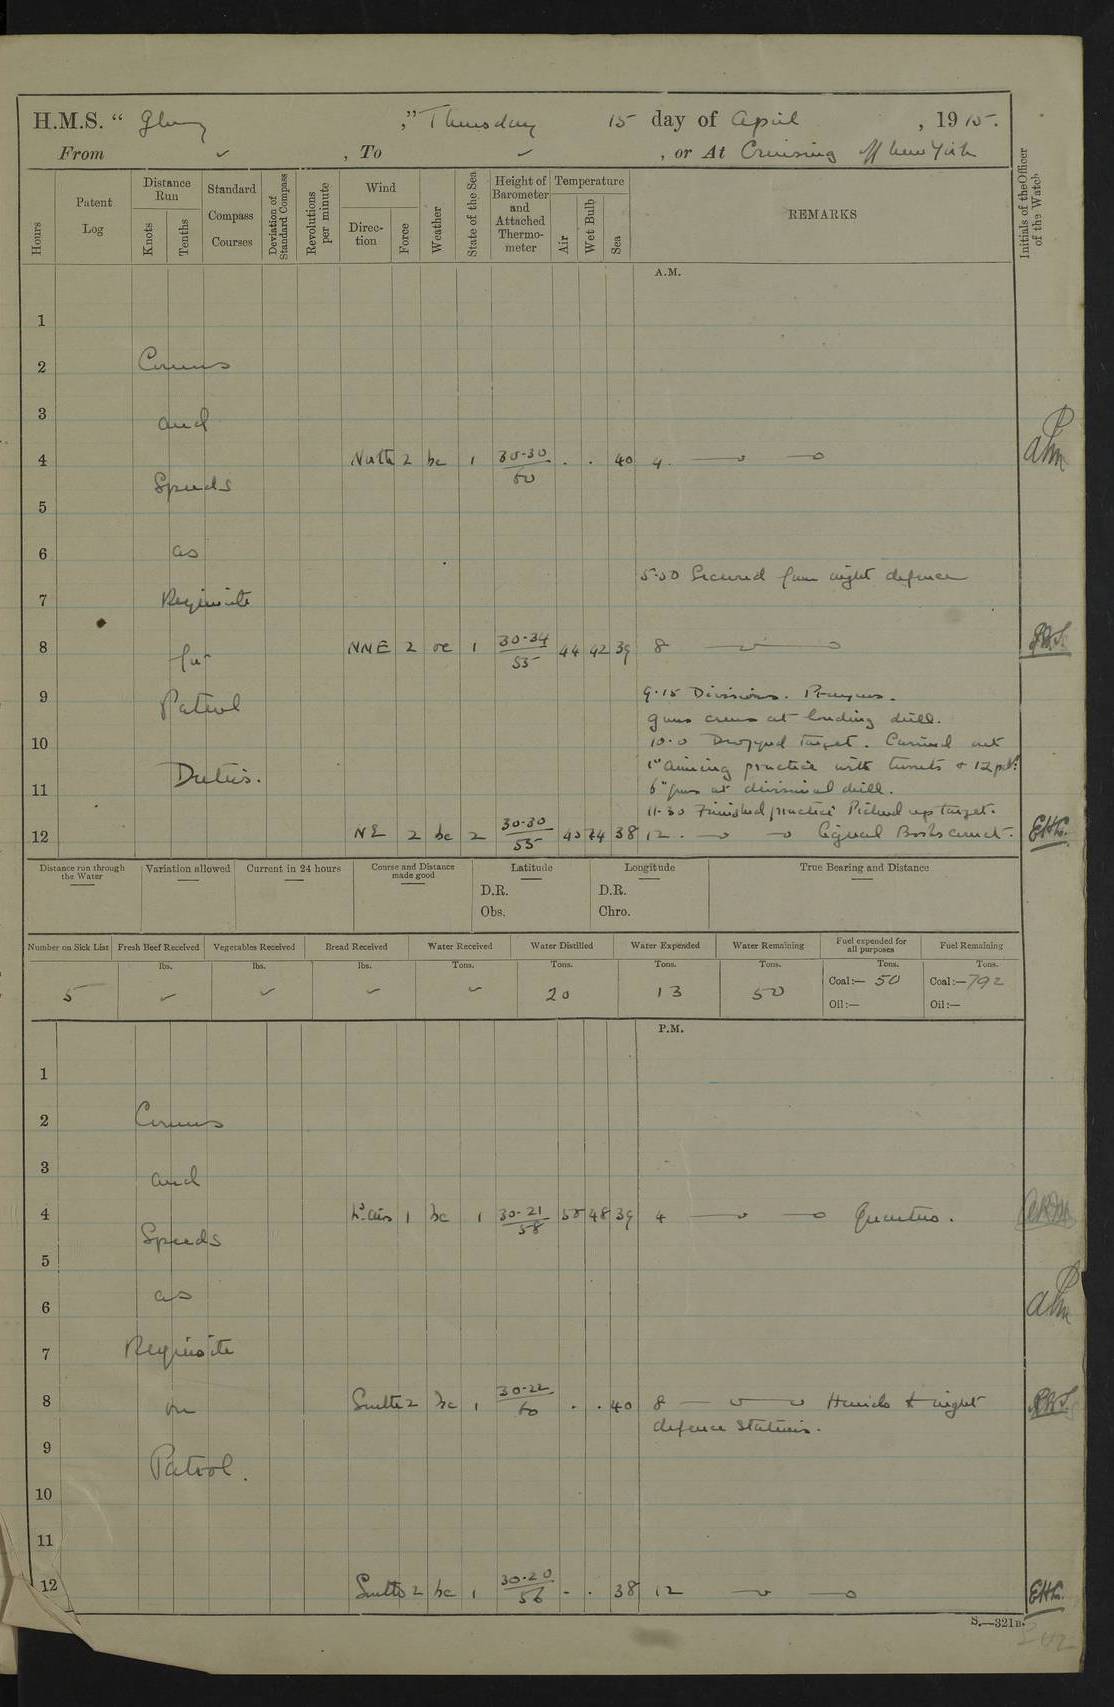 H.M.S. "Glory," Thursday 15 day of April, 1915.
From ✓, To ✓, or At Cruising off New York
Hours
Patent Log
Distance Run
Knots
Tenths
Standard Compass Courses
Deviation of Standard Compass
Revolutions per minute
Wind
Direction
Force
Weather
State of the Sea
Height of Barometer and Attached Thermometer
Temperature
Air
Wet Bulb
Sea
REMARKS
Initials of the Officer of the Watch
A.M.
1
2 Courses
3 and
4 North 2 bc 1 30-30/60 . . 40 4.
Speeds
5
6 as
5-30 Secured from night defence
7 Requisite
8 for NNE 2 oc 1 30-34/55 44 42 39 8
9 Patrol 9.15 Divisions. Prayers.
guns crews at loading drill.
10 10.0 Dropped target. Carried out
Duties. 1" aiming practice with turrets & 12 pdrs
11 6" guns at divisional drill.
11-30 Finished practice Picked up target.
12 NE 2 bc 2 30-30/55 38 12. Signal Books correct. EHL.
Distance run through the Water
Variation allowed
Current in 24 hours
Course and Distance made good
Latitude
D.R.
Obs.
Longitude
D.R.
Chro.
True Bearing and Distance
Number on Sick List
Fresh Beef Received
Vegetables Received
Bread Received
Water Received
Water Distilled
Water Expended
Water Remaining
Fuel expended for all purposes
Fuel Remaining
lbs. lbs. lbs. Tons. Tons. Tons. Tons. Tons. Tons.
5 ✓ ✓ ✓ ✓ 20 13 50 Coal:— 50 Coal:— 792
Oil:— Oil:—
P.M.
1
2 Courses
3 and
4 Lt airs 1 bc 1 30-21/58 58 48 39 4 Quarters.
Speeds
5
6 as
7 Requisite
8 on South 2 bc 1 30-22/60 . . 40 8 Hands to night
defence Stations.
9 Patrol.
10
11
12 South 2 bc 1 30-20/56 - . 38 12 EHL.
S.—321B.